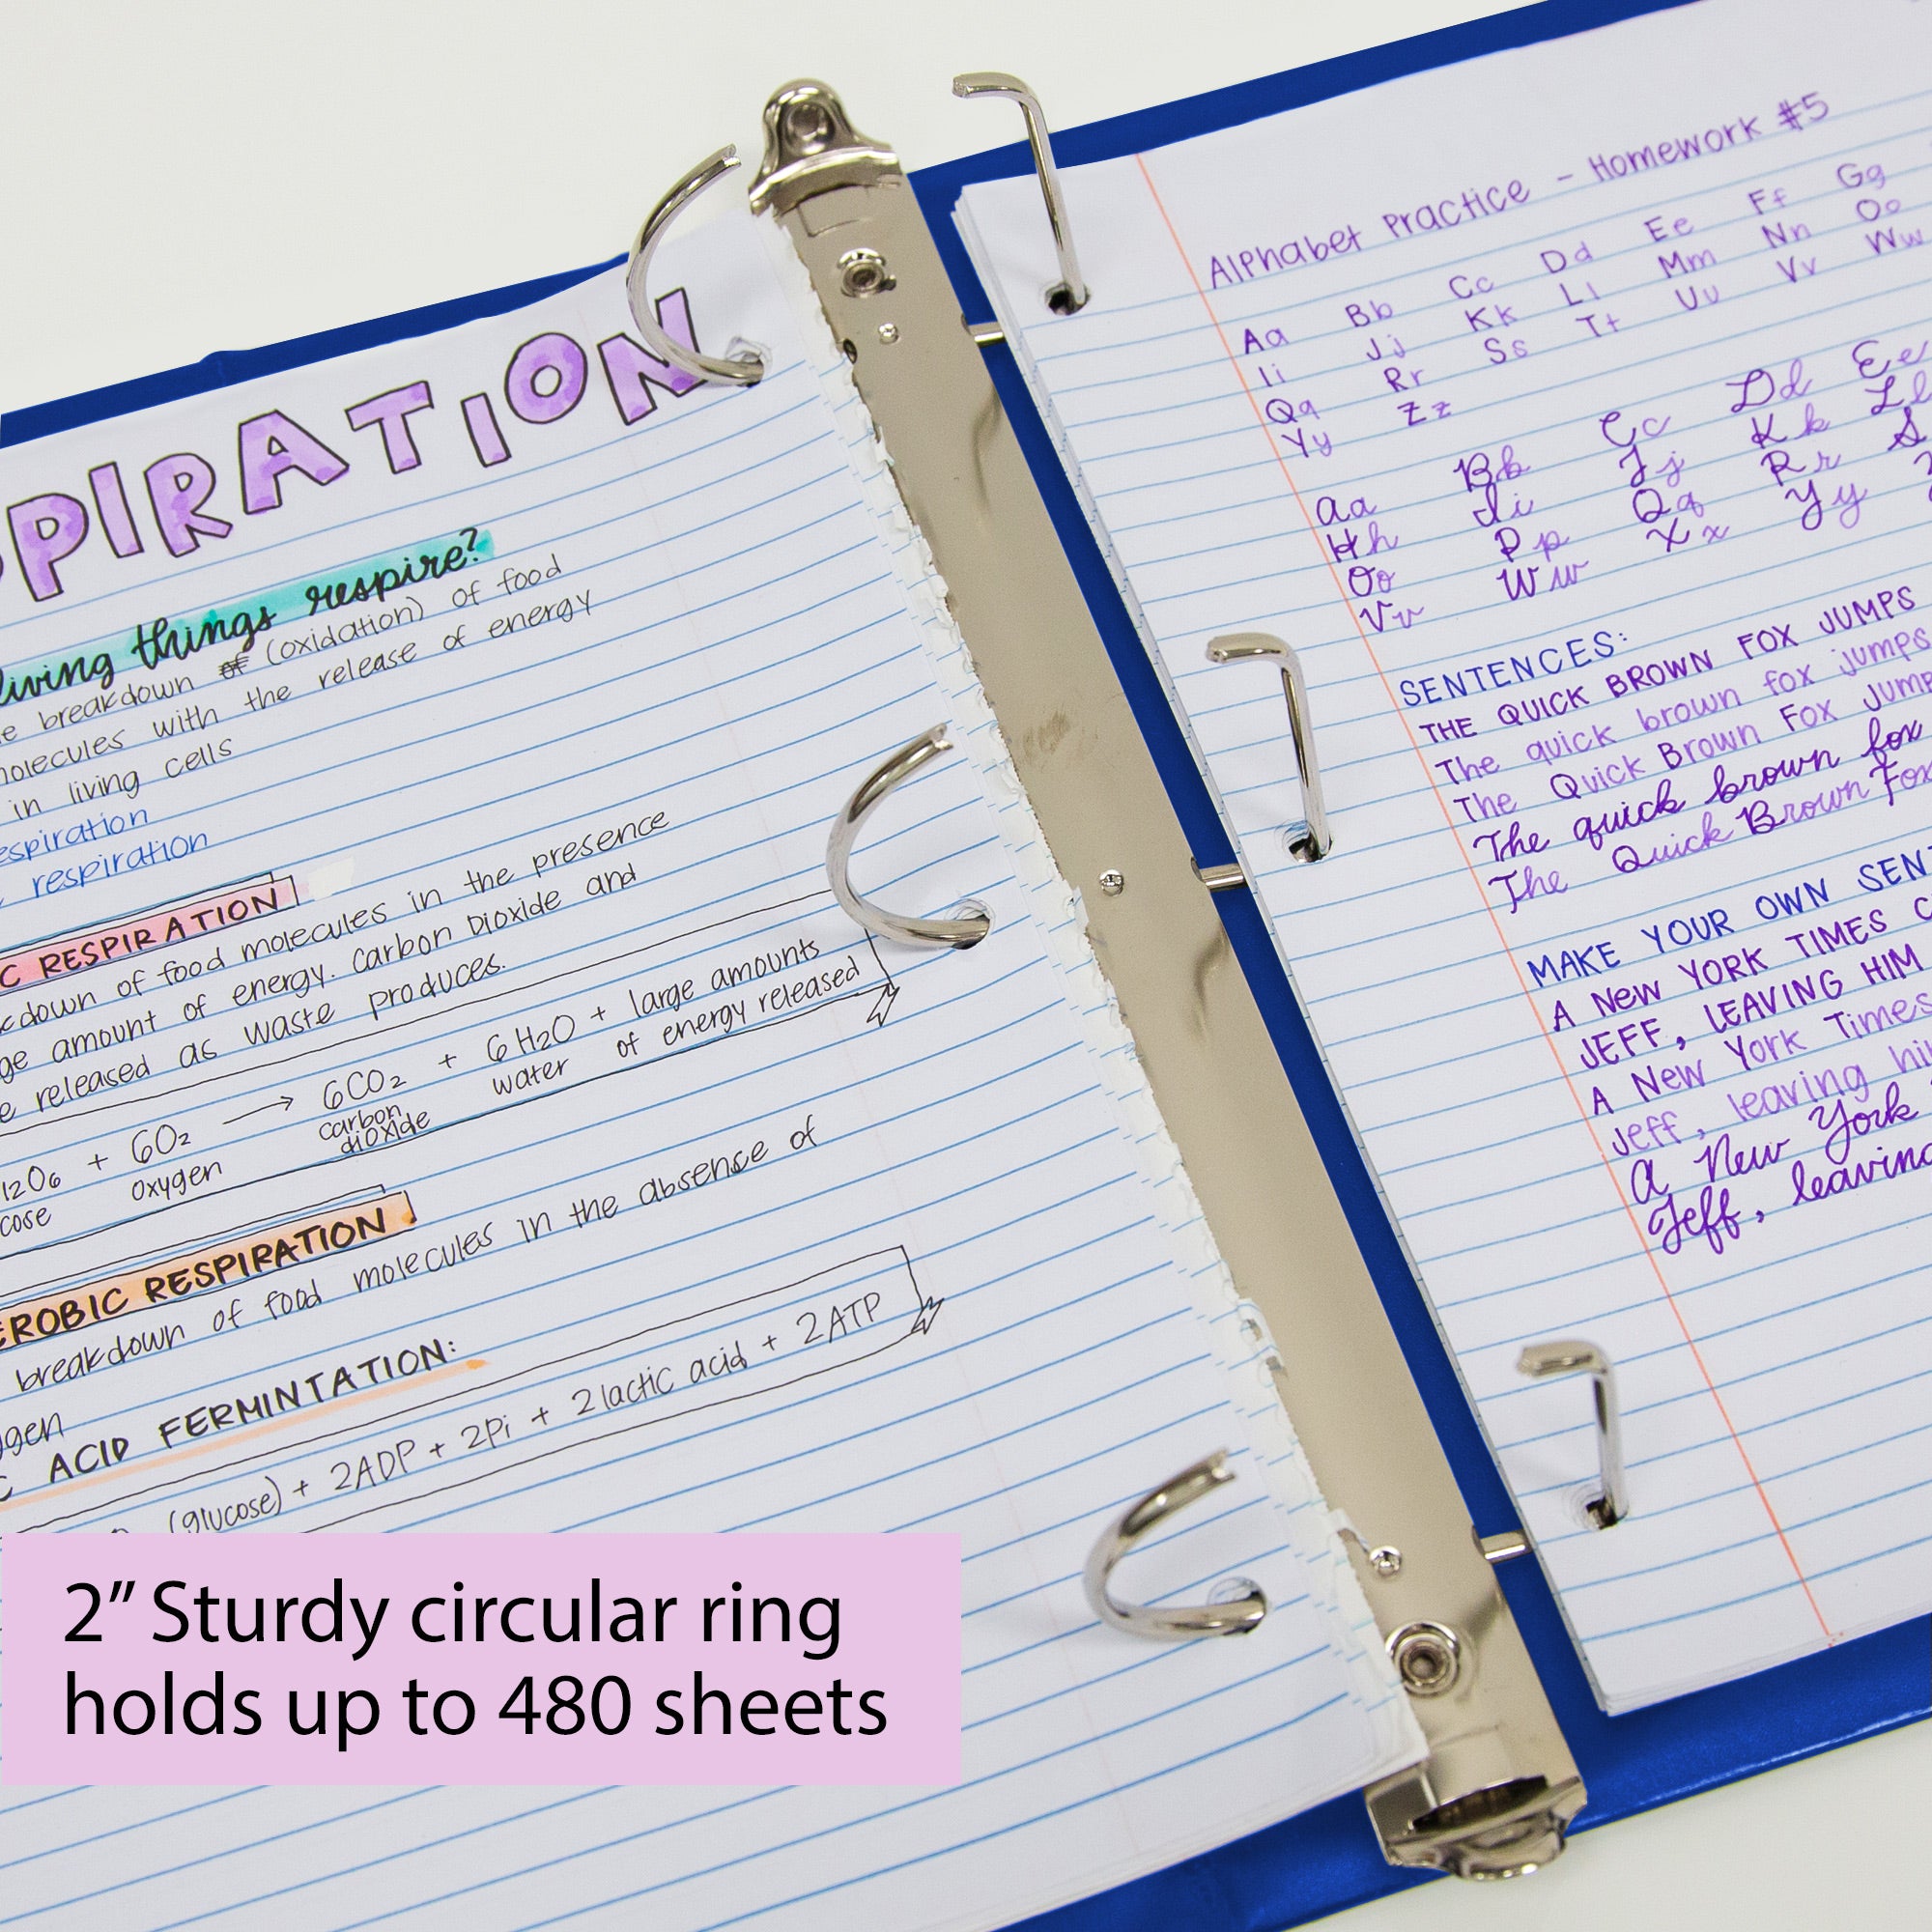 PIRATION
living things respire?
breakdown of (oxidation) of food
molecules with the release of energy
in living cells
respiration
respiration
C RESPIRATION
down of food molecules in the presence
amount of energy. Carbon Dioxide and
released as waste produces.
12O6 + 6O2 → 6CO2 + 6H2O + large amounts
of energy released
oxygen carbon dioxide water
EROBIC RESPIRATION
breakdown of food molecules in the absence of
ACID FERMINTATION:
(glucose) + 2ADP + 2Pi + 2 lactic acid + 2ATP
Alphabet Practice - Homework #5
Aa Bb Cc Dd Ee Ff Gg
Ii Jj Kk Ll Mm Nn Oo
Qq Rr Ss Tt Uu Vv Ww
Yy Zz
Aa Bb Cc Dd Ee
Hh Ii Jj Kk Ll
Oo Pp Qq Rr S
Vv Ww Xx Yy
SENTENCES:
THE QUICK BROWN FOX JUMPS
The quick brown fox jumps
The Quick Brown Fox Jump
The quick brown fox
The Quick Brown Fox
MAKE YOUR OWN SENT
A NEW YORK TIMES C
JEFF, LEAVING HIM
A New York Times
Jeff, leaving hi
A New York
Jeff, leaving
2” Sturdy circular ring
holds up to 480 sheets